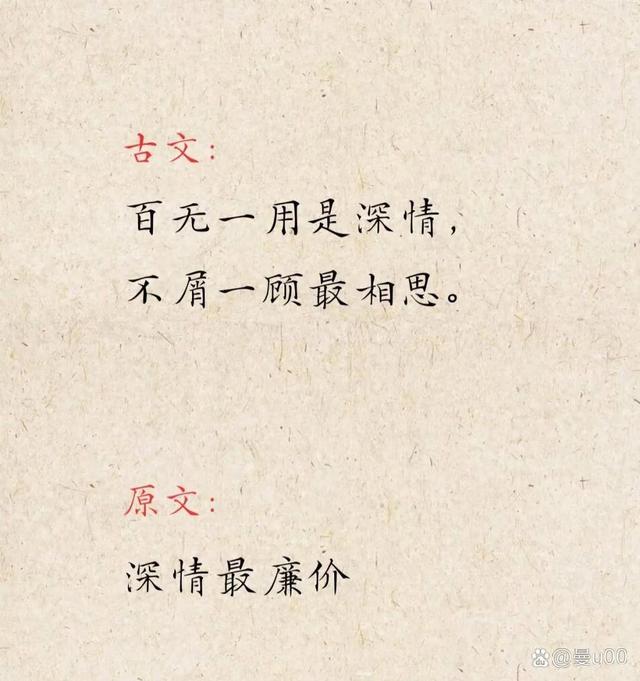 古文：
百无一用是深情，
不屑一顾最相思。
原文：
深情最廉价
@曼u00